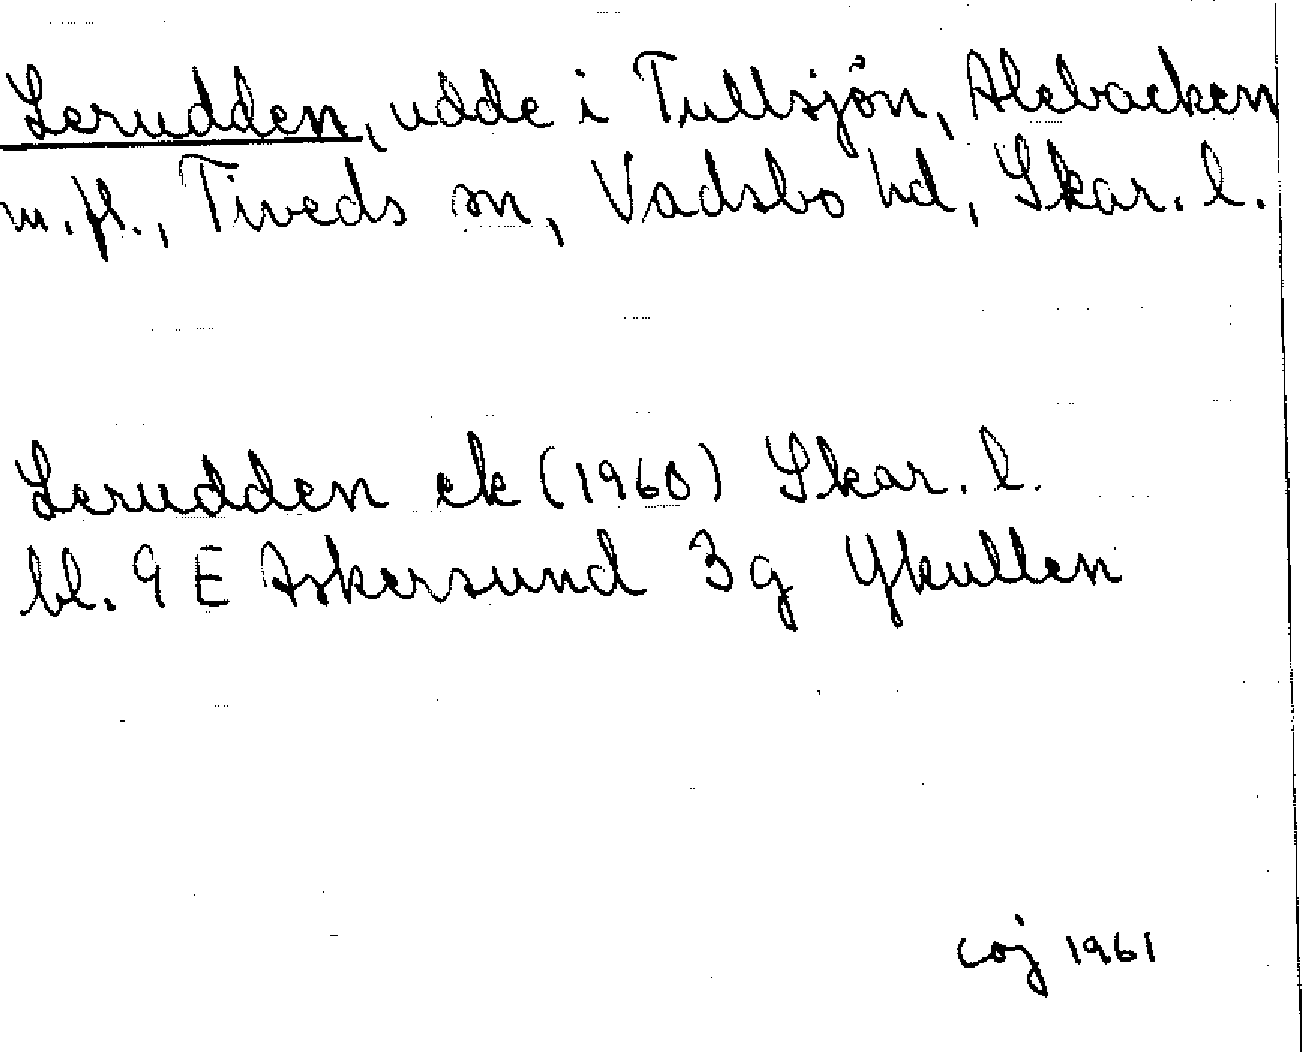 Lerudden, udde i Tullsjön, Alebacken
m.fl., Tiveds sn, Vadsbo hd, Skar. l.
Lerudden ek (1960) Skar. l.
bl. 9 E Askersund 3g Ykullen
coj 1961